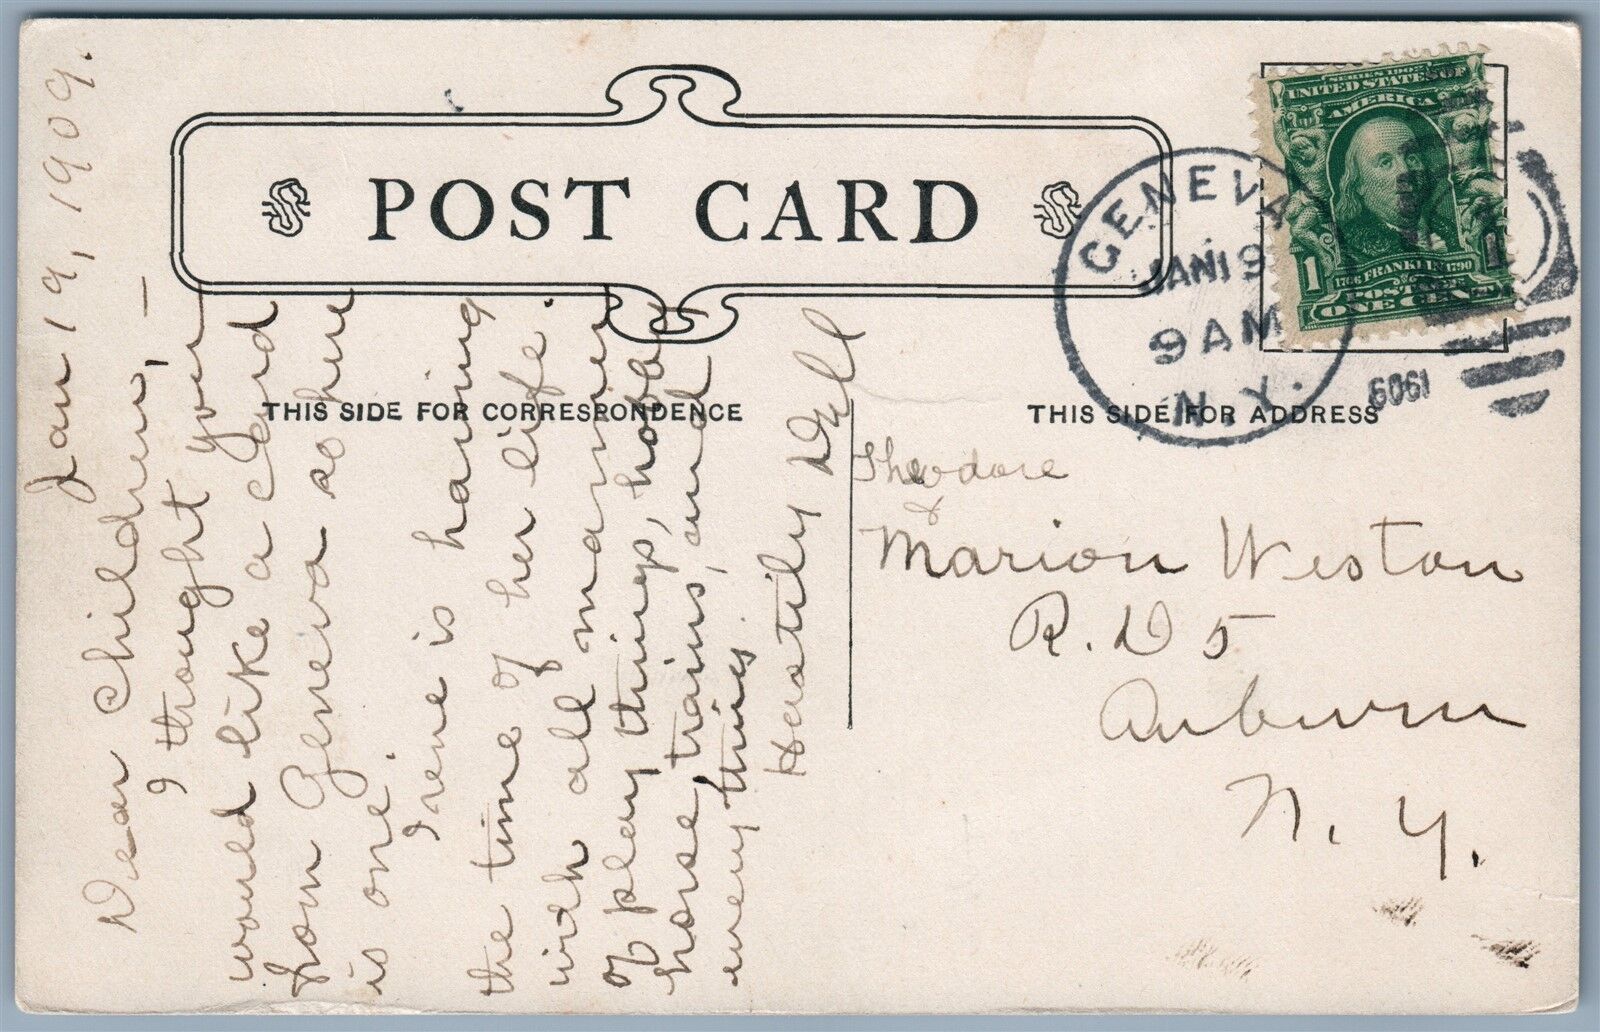 POST CARD
THIS SIDE FOR CORRESPONDENCE
THIS SIDE FOR ADDRESS
SERIES 1902
UNITED STATES OF
AMERICA
1
1706 FRANKLIN 1790
POSTAGE
ONE CENT
1
GENEVA
JAN 19
9 AM
N.Y.
1909
Jan 19, 1909.
Dear Children, —
I thought you
would like a card
from Geneva so here
is one.
Irene is having
the time of her life.
with all manner
of play things, hobby
horse, trains, and
every thing.
Hastily
Theodore
&
Marion Weston
R. D 5
Auburn
N. Y.